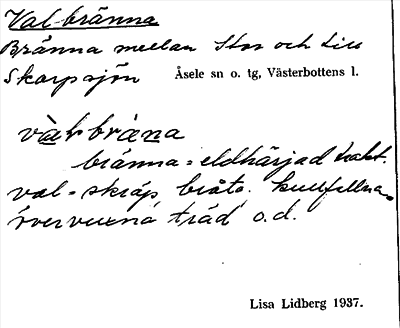 Val-bränna
Bränna mellan Stor och Lill
Skarpsjön Åsele sn o. tg, Västerbottens l.
vàlbrὰna
bränna = eldhärjad trakt.
val = skräp, bråte. kullfallna,
övervuxna träd o.d.
Lisa Lidberg 1937.